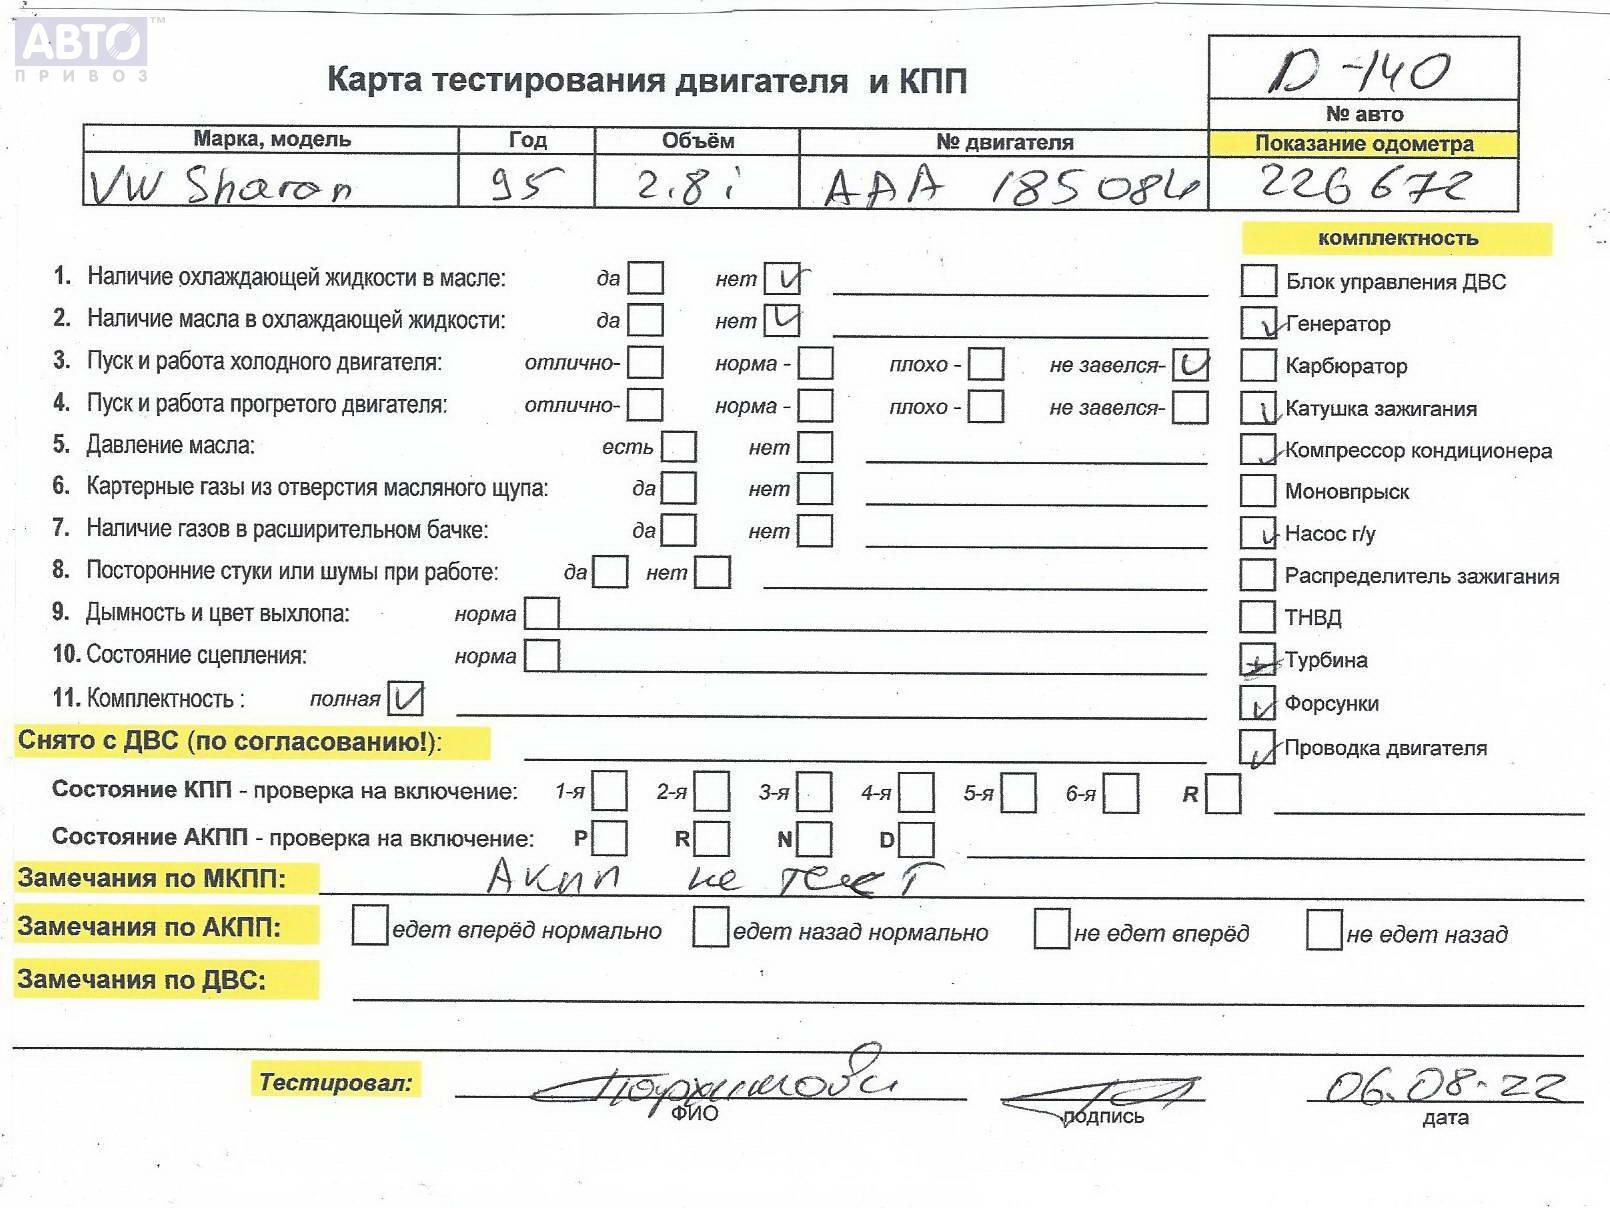 АВТО™
ПРИВОЗ
Карта тестирования двигателя и КПП
D-140
№ авто
Марка, модель Год Объём № двигателя Показание одометра
VW Sharan 95 2.8i AAA 185084 226672
комплектность
1. Наличие охлаждающей жидкости в масле: да нет
Блок управления ДВС
2. Наличие масла в охлаждающей жидкости: да нет
Генератор
3. Пуск и работа холодного двигателя: отлично- норма - плохо - не завелся-
Карбюратор
4. Пуск и работа прогретого двигателя: отлично- норма - плохо - не завелся-
Катушка зажигания
5. Давление масла: есть нет
Компрессор кондиционера
6. Картерные газы из отверстия масляного щупа: да нет
Моновпрыск
7. Наличие газов в расширительном бачке: да нет
Насос г/у
8. Посторонние стуки или шумы при работе: да нет
Распределитель зажигания
9. Дымность и цвет выхлопа: норма
ТНВД
10. Состояние сцепления: норма
Турбина
11. Комплектность : полная
Форсунки
Снято с ДВС (по согласованию!):
Проводка двигателя
Состояние КПП - проверка на включение: 1-я 2-я 3-я 4-я 5-я 6-я R
Состояние АКПП - проверка на включение: P R N D
Замечания по МКПП: Акпп не тест
Замечания по АКПП: едет вперёд нормально едет назад нормально не едет вперёд не едет назад
Замечания по ДВС:
Тестировал: 06.08.22
ФИО подпись дата